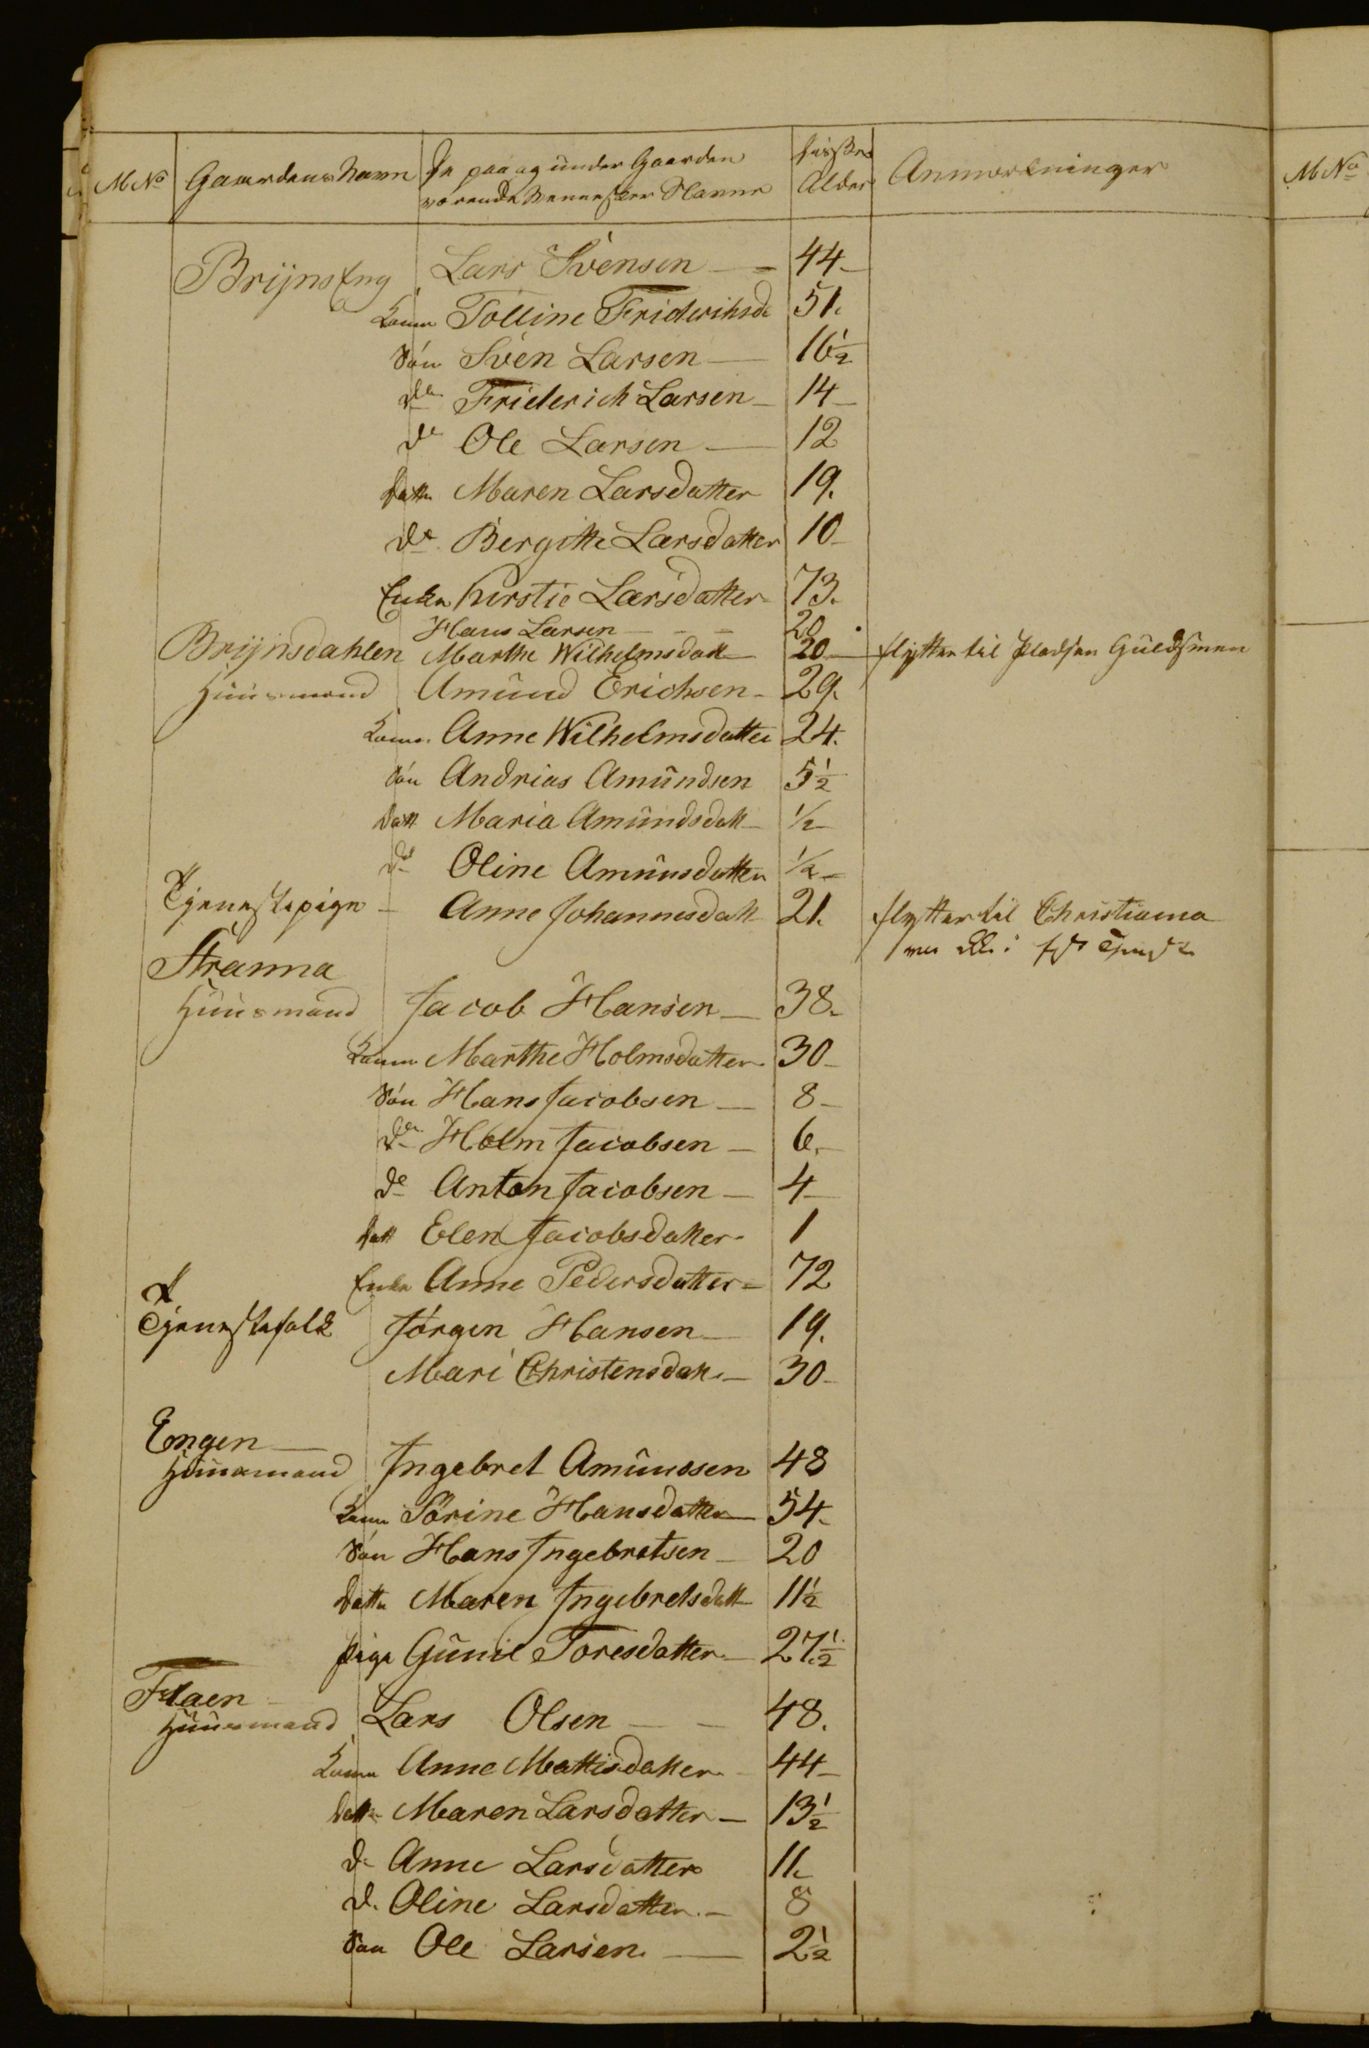 M No Gaardens Navn De paa og under Gaarden værende Menneskers Navne disses Alder Anmærkninger M No
BrijnsEng Lars Svensen 44
Kone Tolline Friderihsd 51.
Søn Sven Larsen 16½
do Friderich Larsen 14
do Ole Larsen 12
Datter Maren Larsdatter 19.
do Bergitte Larsdatter 10
Enke Kirstie Larsdatter 73.
Hans Larsen 20
Brijnsdahlen Marthe Wilhelmsdatt 20 flytter til Pladsen Guldsmen
Huusmand Amund Erichsen 29.
Kone Anne Wilhelmsdatter 24.
Søn Andrias Amundsen 5½
Datt Maria Amundsdatt ½
do Oline Amunsdatter ½
Tjenestepige Anne Johannesdatt 21. flytter til Christiania
Stranna
Huusmand Jacob Hansen 38.
Kone Marthe Holmsdatter 30
Søn Hans Jacobsen 8
do Holm Jacobsen 6.
do Anton Jacobsen 4
Datt Elen Jacobsdatter 1
Enke Anne Pedersdatter 72
Tjenestefolk Jørgen Hansen 19.
Mari Christensdatt. 30
Engen
Huusmand Ingebret Amundsen 48
Kone Sørine Hansdatter 54.
Søn Hans Ingebretsen 20
Datter Maren Ingebretsdatt 11½
Pige Gunil Toresdatter 27½
Flaen
Huusmand Lars Olsen 48.
Kone Anne Mattisdatter 44
Datt Maren Larsdatter 13½
d. Anne Larsdatter 11.
d. Oline Larsdatter 8
Søn Ole Larsen. 2½